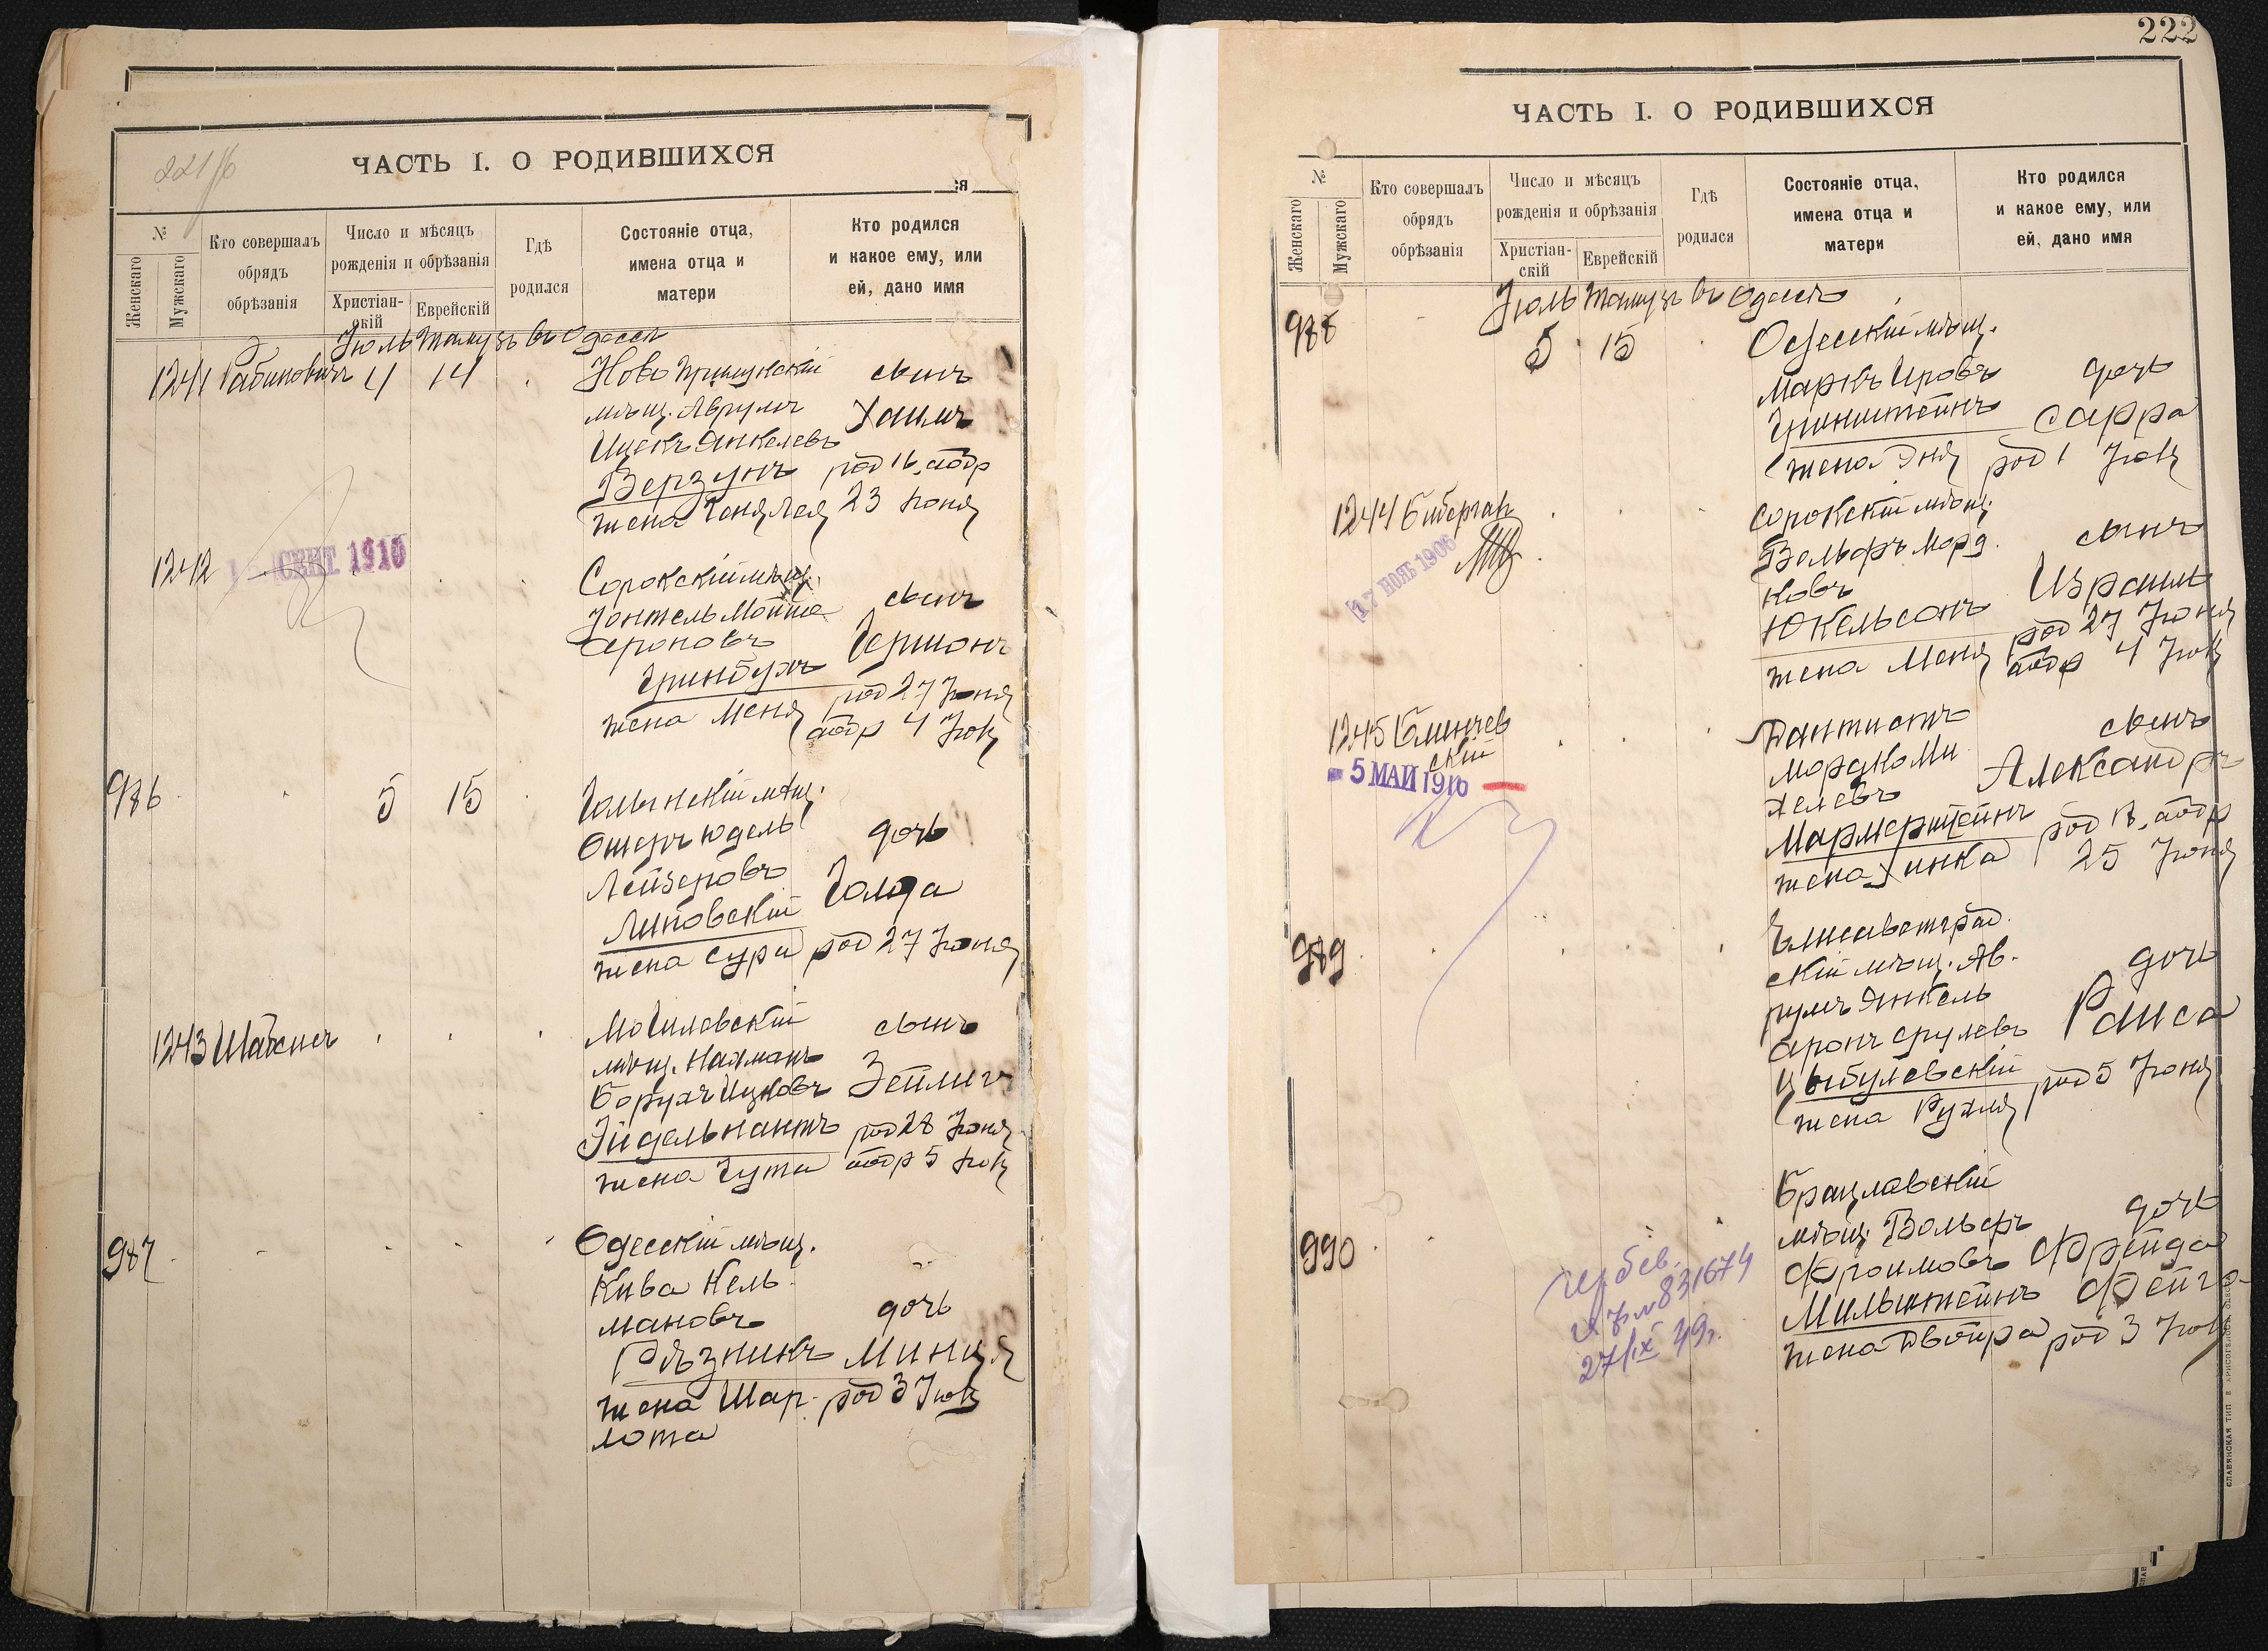 221/б
ЧАСТЬ I. О РОДИВШИХСЯ
ся
№
Женскаго
Мужскаго
Кто совершалъ
обрядъ
обрѣзанія
Число и мѣсяцъ
рожденія и обрѣзанія
Христіан-
скій
Еврейскій
Гдѣ
родился
Состояніе отца,
имена отца и
матери
Кто родился
и какое ему, или
ей, дано имя
Іюль Тамузъ въ Одессѣ
1241 Рабиновичъ 4 14
Ново
мѣщ. Аврумъ
Ицекъ Янкелевъ
Верзунъ
жена Лея
сынъ
Хаимъ
род 16, аобр
23 Іюня
1242
СЕНТ 1910
Сорокскій мѣщ.
Іонтель Мойше
Ароновъ
Гринбумъ
жена Меня
сынъ
Гершонъ
род 27 Іюня
аобр 4 Іюл
986 5 15
мѣщ.
Ошеръ Юдель
Лейзеровъ
Липовскій
жена Сура
дочь
Голда
род 27 Іюня
1243
Могилевскій
мѣщ. Нахманъ
Борухъ Ицковъ
Эйдельнантъ
жена Гута
сынъ
Зейлигъ
род 28 Іюня
аобр 5 Іюл
987
Одесскій мѣщ.
Кива Кель-
мановъ
Рѣзникъ
жена Шар-
лота
дочь
Минця
род 3 Іюл
222
ЧАСТЬ I. О РОДИВШИХСЯ
№
Женскаго
Мужскаго
Кто совершалъ
обрядъ
обрѣзанія
Число и мѣсяцъ
рожденія и обрѣзанія
Христіан-
скій
Еврейскій
Гдѣ
родился
Состояніе отца,
имена отца и
матери
Кто родился
и какое ему, или
ей, дано имя
Іюль Тамузъ въ Одессѣ
988 5 15
Одесскій мѣщ.
Маркъ Ировъ
Гринштейнъ
жена Эня
дочь
Сарра
род 1 Іюл
1244 Бибергал
17 НОЯБ 1906
Сорокскій мѣщ.
Вольфъ Морд-
ковъ
Юкельсонъ
жена Меня
сынъ
Израиль
род 27 Іюня
аобр 4 Іюл
1245 Блинчев
скій
- 5 МАЙ 1910
Дантистъ
Мордко Ми
хелевъ
Мармерштейнъ
жена Хинка
сынъ
Александръ
род 18, аобр
25 Іюня
989
Елисаветград
скій мѣщ. Ав-
румъ Янкель
Аронъ Срулевъ
Цыбулевскій
жена Рухля
дочь
Раиса
род 5 Іюня
990
Брацлавскій
мѣщ. Вольфъ
Фроимовъ
Мильштейнъ
жена Двойра
дочь
Фрейда
Фейга
род 3 Іюл
831674
27/IX 49г.
СЛАВЯНСКАЯ ТИП